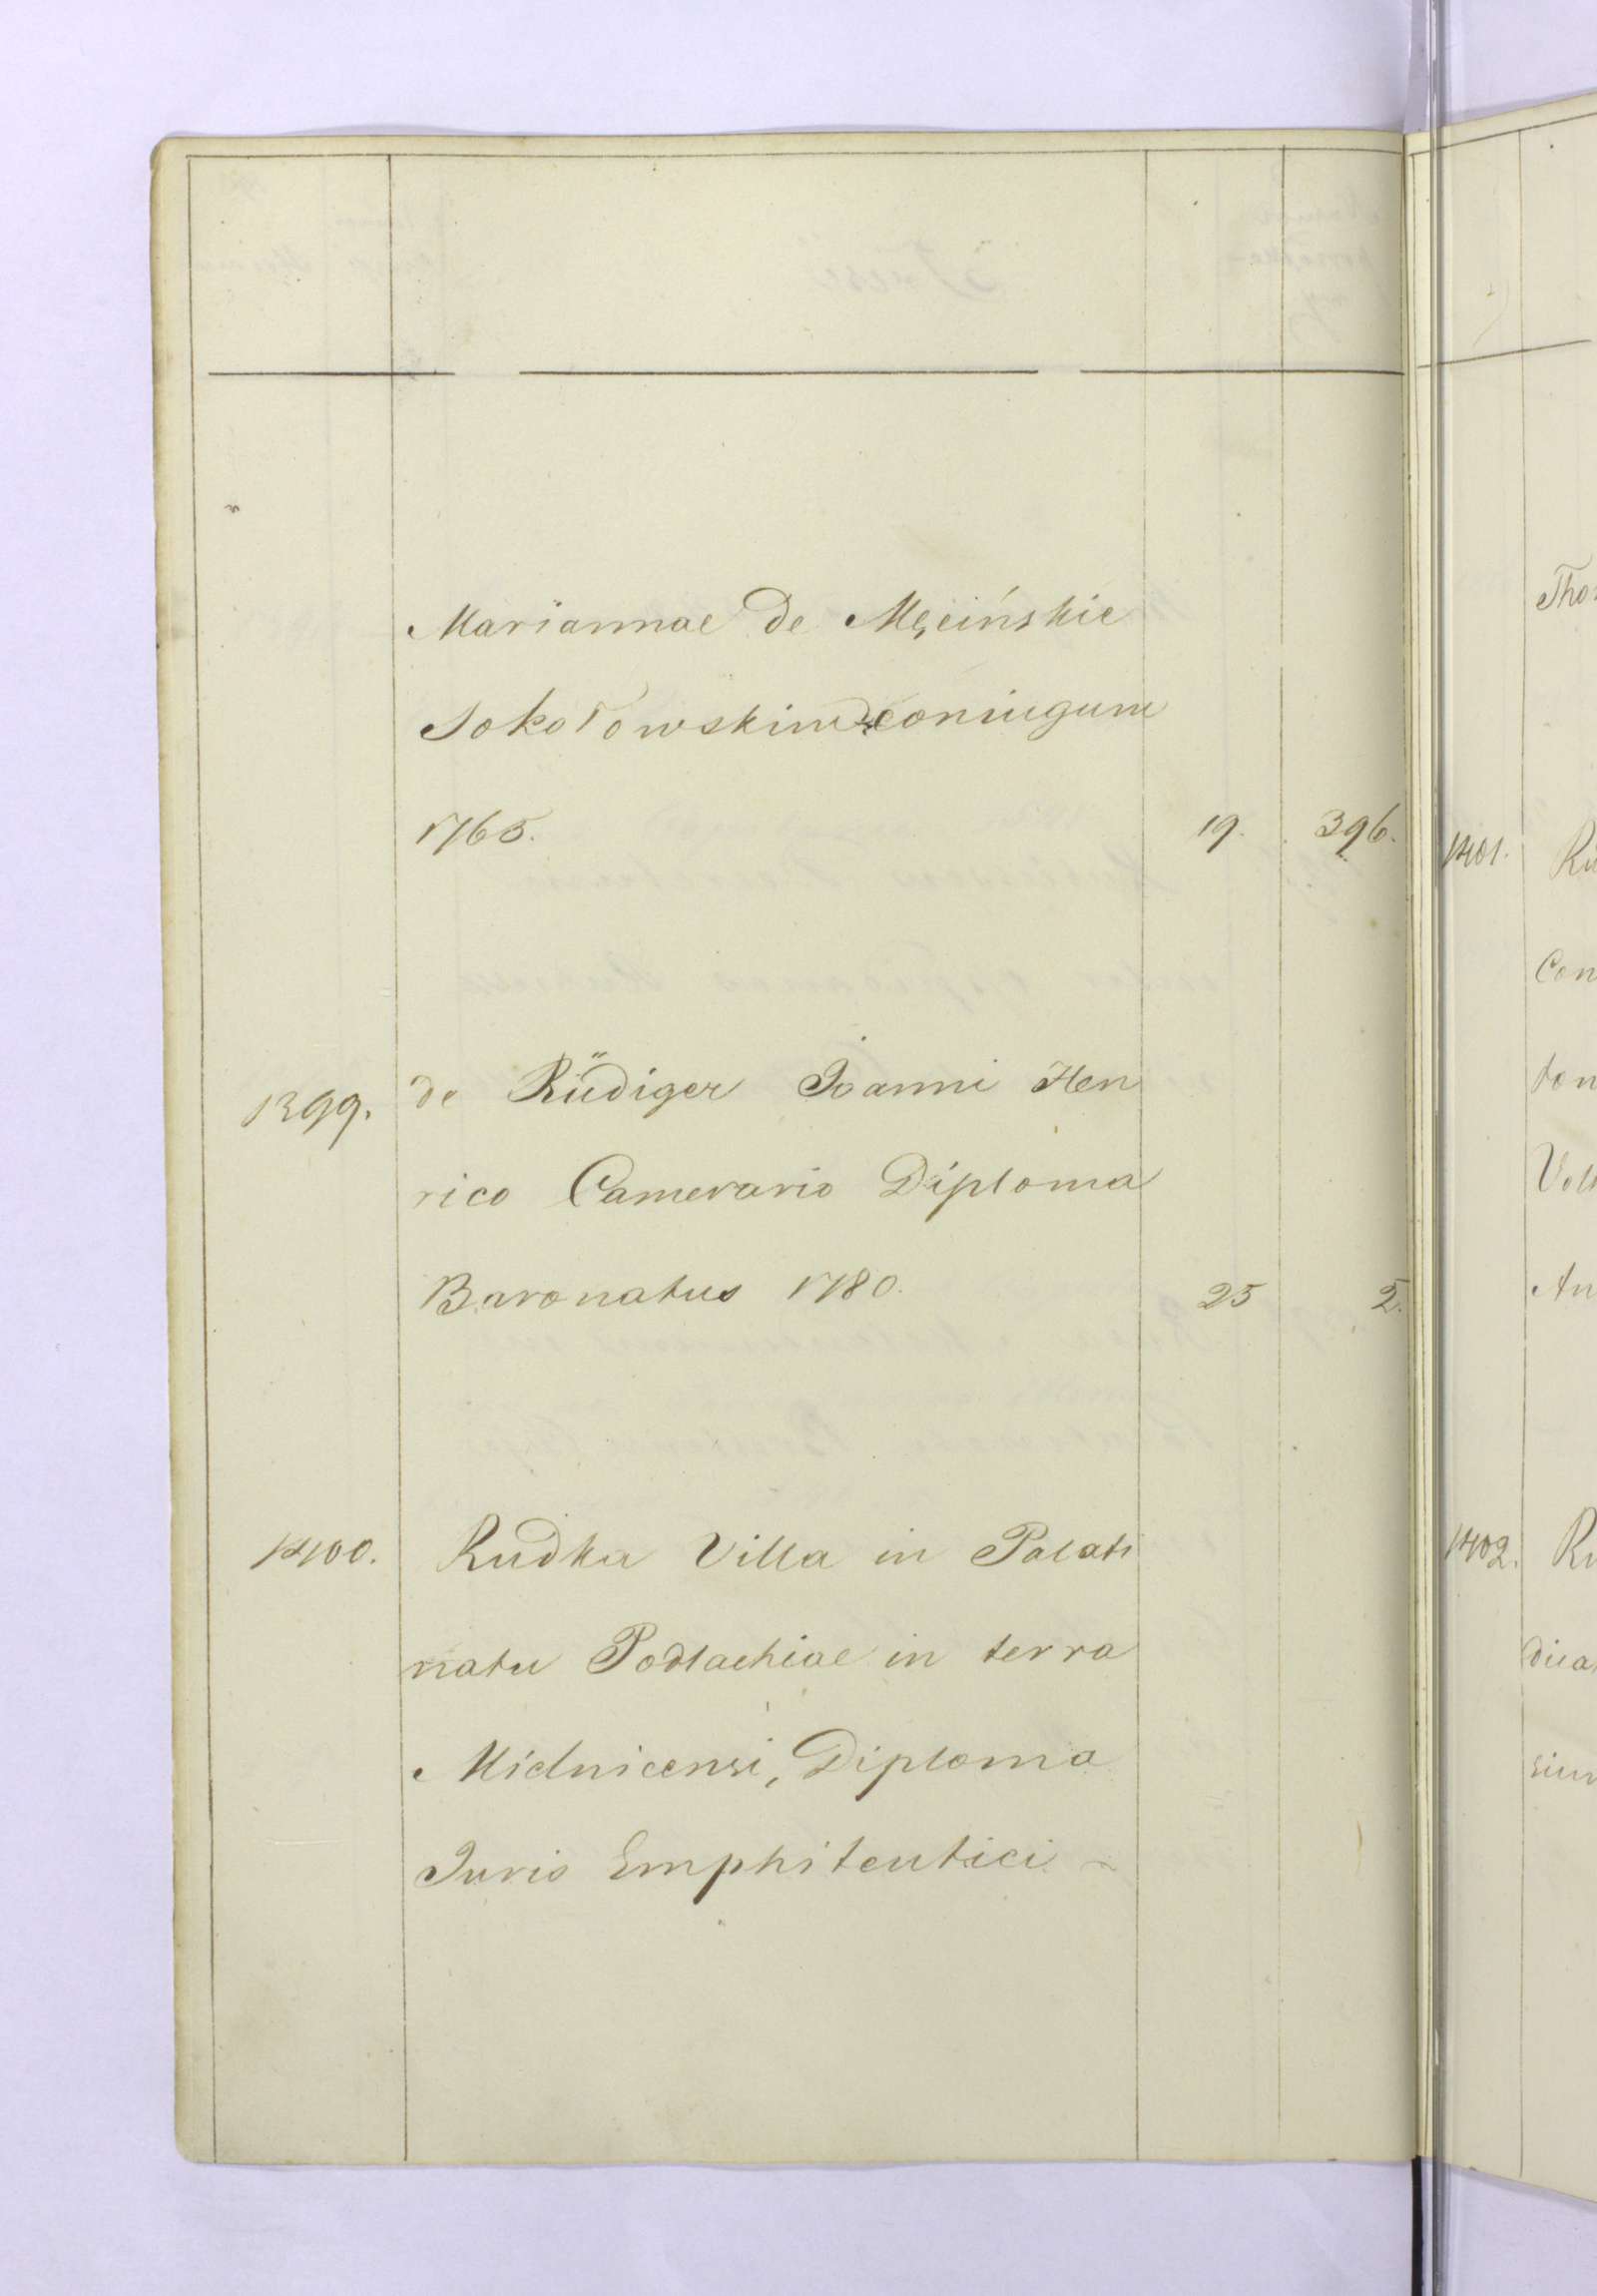 Mariannae de Męcińskie
Sokołowskim coniugum
1765. 19. 396.
1399. de Rüdiger Ioanni Hen
rico Camerario Diploma
Baronatus 1780. 25 2.
1400. Rudka Villa in Palati
natu Podlachiae in terra
Mielnicensi, Diploma
Iuris Emphiteutici -
Thom
1401. Ru
Con
ton
Vol
An
1402. Ru
dica
sium